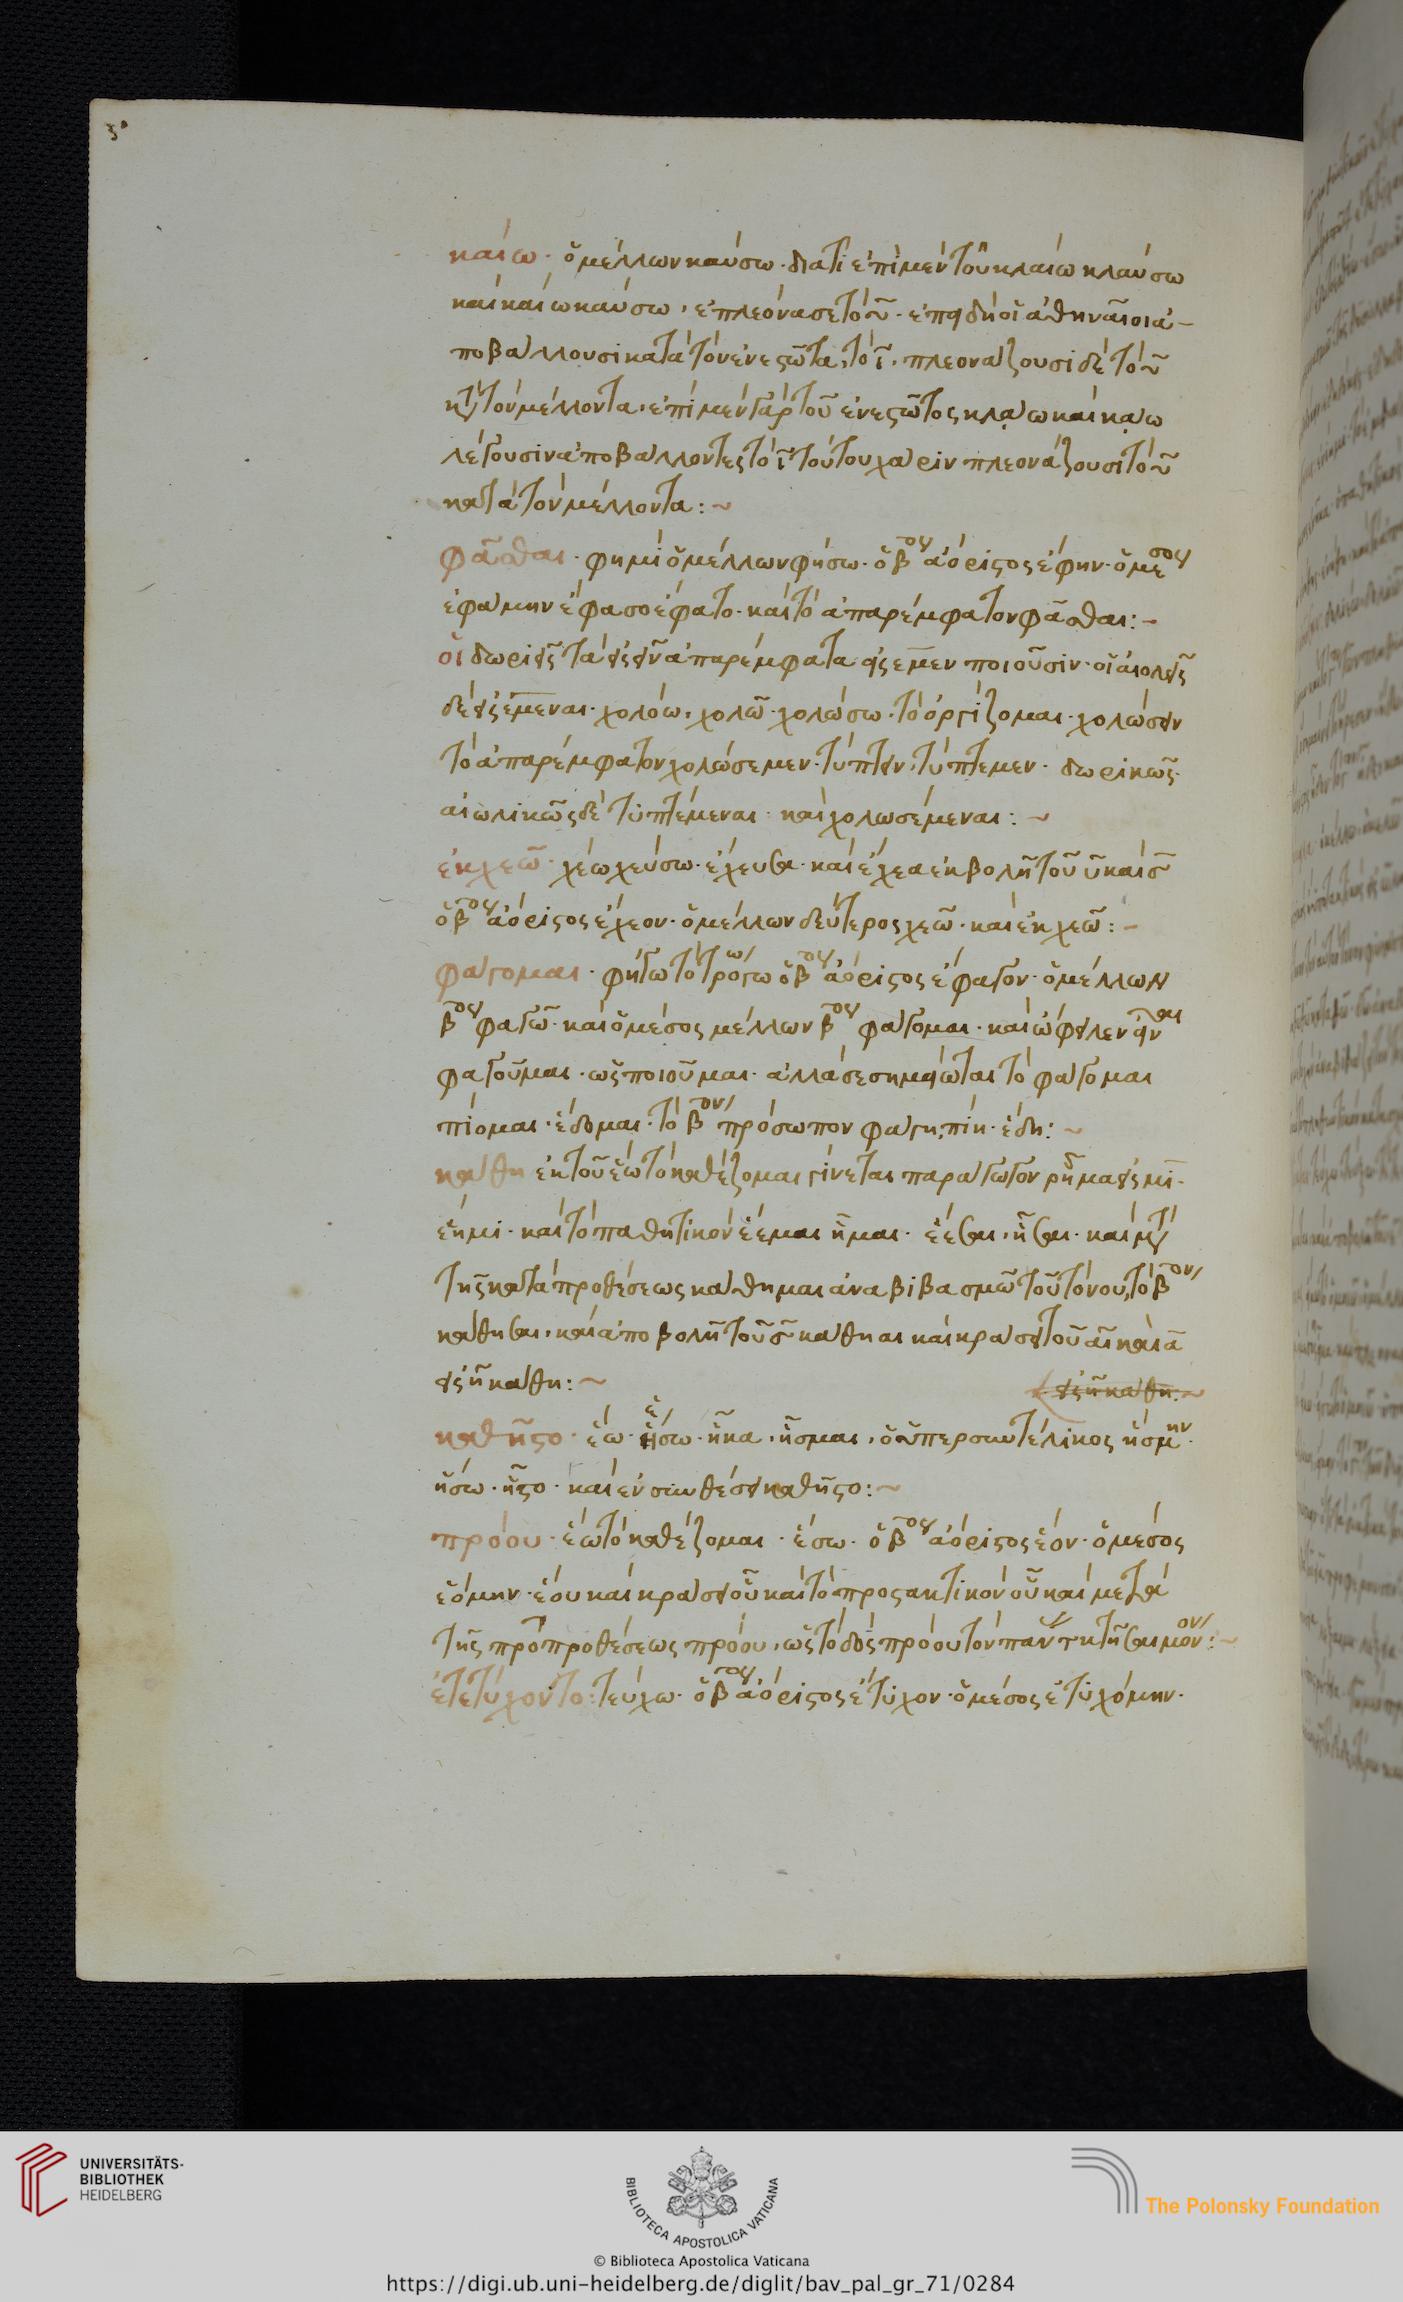 καίω · ὁ μέλλων καύσω · διατί ἐπὶ μὲν τοῦ κλαίω κλαύσω
καὶ καίω καύσω, ἐπλεόνασε τὸ υ̅ · ἐπειδὴ οἱ ἀθηναῖοι ἀ-
ποβάλλουσι κατὰ τὸν ἐνεστῶτα, τὸ ϊ · πλεονάζουσι δὲ τὸ υ̅
κατὰ τὸν μέλλοντα · ἐπὶ μὲν γὰρ τοῦ ἐνεστῶτος κλάω καὶ κάω
λέγουσιν ἀποβάλλοντες τὸ ϊ · τούτου χάριν πλεονάζουσι τὸ υ̅
κατὰ τὸν μέλλοντα : ~
φᾶσθαι · φημὶ ὁ μέλλων φήσω · ὁ β̅ος ἀόριστος ἔφην · ὁ μέσος
ἐφάμην ἔφασο ἔφατο · καὶ τὸ ἀπαρέμφατον φᾶσθαι : ~
οἱ δωριεῖς τὰ εἰς ειν ἀπαρέμφατα εἰς εμεν ποιοῦσιν · οἱ αἰολεῖς
δὲ εἰς έμεναι · χολόω, χολῶ · χολώσω · τὸ ὀργίζομαι · χολώσειν
τὸ ἀπαρέμφατον χολώσεμεν · τύπτειν, τύπτεμεν · δωρικῶς ·
αἰωλικῶς δὲ τυπτέμεναι · καὶ χολωσέμεναι : ~
ἐκχεῶ · χέω χεύσω · ἔχευσα · καὶ ἔχεα ἐκβολῆ τοῦ υ̅ καὶ σ̅
ὁ β̅ος ἀόριστος ἔχεον · ὁ μέλλων δεύτερος χεῶ · καὶ ἐκχεῶ : ~
φάγομαι · φήγω τὸ τρώγω ὁ β̅ος ἀόριστος ἔφαγον · ὁ μέλλων
β̅ος φαγῶ · καὶ ὁ μέσος μέλλων β̅ος φάγομαι · καὶ ὤφειλεν εἶναι
φαγοῦμαι · ὡς ποιοῦμαι · ἀλλὰ σεσημείωται τὸ φάγομαι
πίομαι · ἔδομαι · τὸ β̅ον πρόσωπον φάγη, πίη · ἔδη : ~
κάθη ἐκ τοῦ ἕω τὸ καθέζομαι γίνεται παράγωγον ῥῆμα εἰς μι ·
ἕημι · καὶ τὸ παθητικὸν ἕεμαι ἧμαι · ἕεσαι, ἧσαι · καὶ μετὰ
τῆς κατὰ προθέσεως κάθημαι ἀναβιβασμῶ τοῦ τόνου, τὸ β̅ον
κάθησαι, καὶ ἀποβολῆ τοῦ σ̅ κάθηαι καὶ κράσει τοῦ αι καὶ α̅
εἰς η̅ κάθη : ~ εἰς η̅ κάθη : ~
καθῆστο · ἕω · ἥσω · ἧκα, ἧσμαι, ὁ ὑπερσυντέλικος ἥσμην ·
ἧσω · ἧστο · καὶ ἐν συνθέσει καθῆστο : ~
πρόου · ἕω τὸ καθέζομαι · ἕσω · ὁ β̅ος ἀόριστος ἕον · ὁ μέσος
ἑόμην · ἕου καὶ κράσει οὗ καὶ τὸ προστακτικὸν οὗ καὶ μετὰ
τῆς πρὸ προθέσεως πρόου, ὡς τὸ δὸς πρόου τὸν
ἐτετύχοντο : τεύχω · ὁ β̅ος ἀόριστος ἔτυχον · ὁ μέσος ἐτυχόμην ·
UNIVERSITÄTS-
BIBLIOTHEK
HEIDELBERG
BIBLIOTECA APOSTOLICA VATICANA
© Biblioteca Apostolica Vaticana
The Polonsky Foundation
https://digi.ub.uni-heidelberg.de/diglit/bav_pal_gr_71/0284